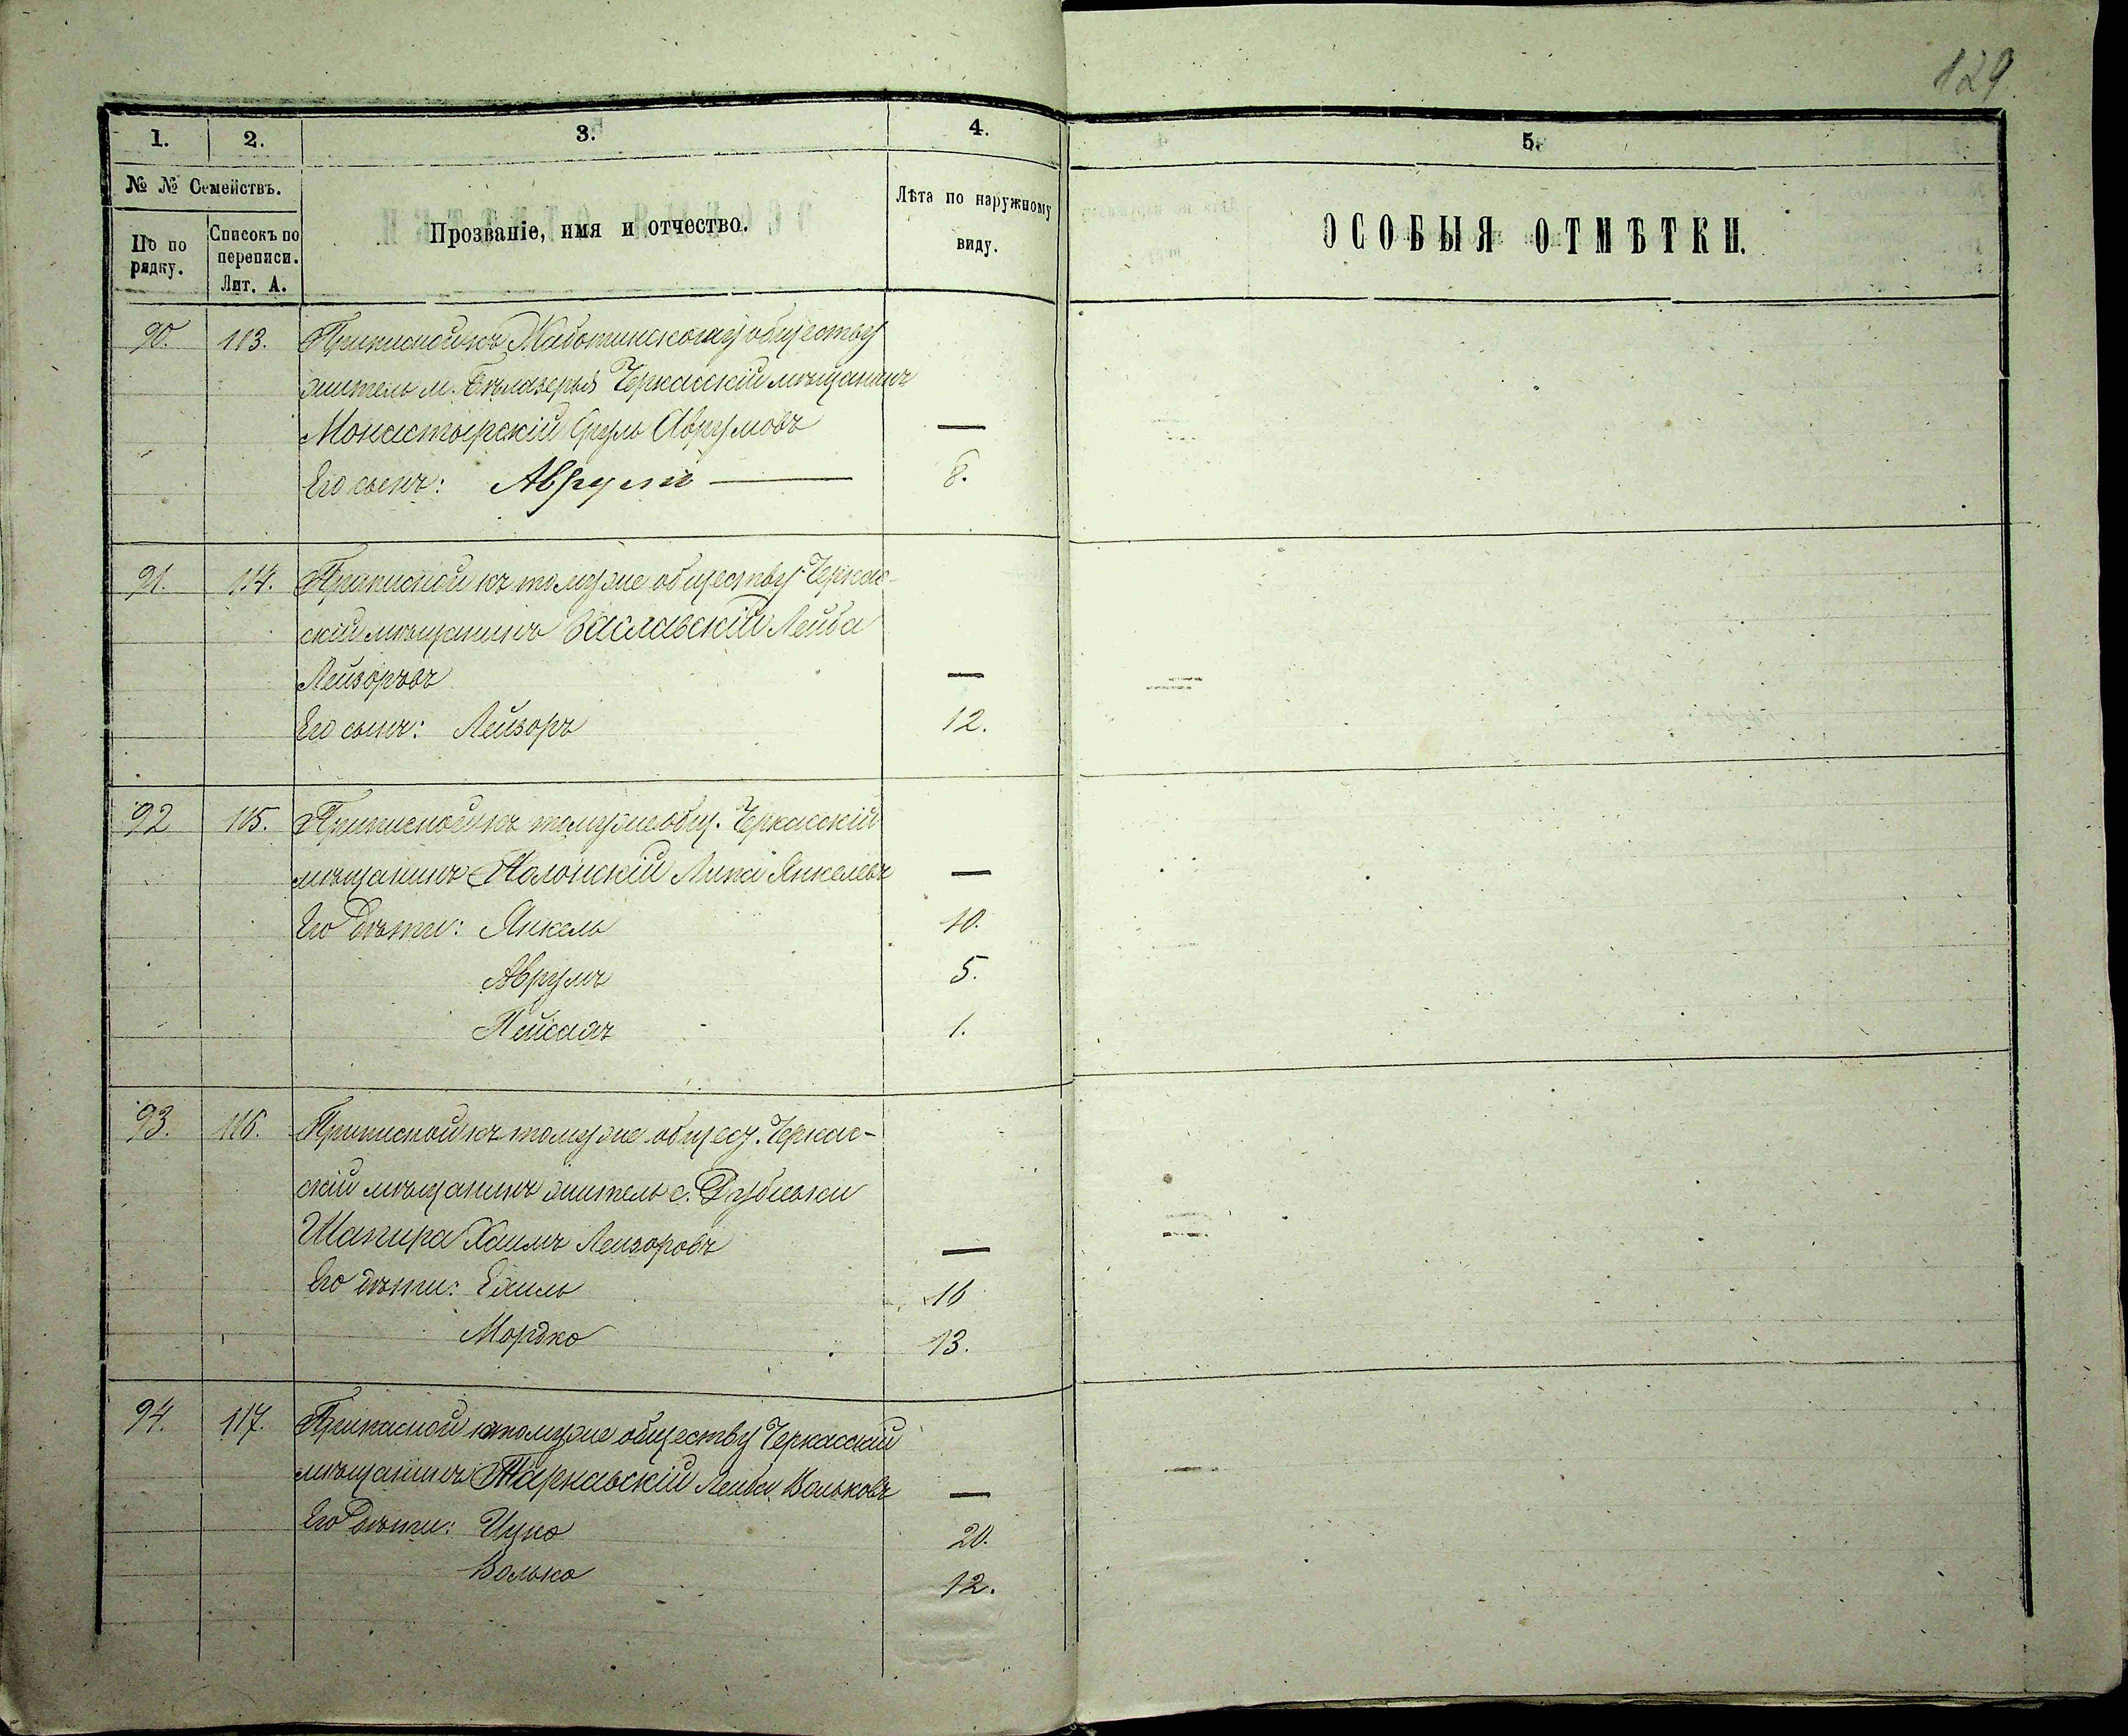 129
1. 2. 3. 4. 5.
№ № Семействъ.
По порядку.
Списокъ по переписи. Лит. А.
Прозваніе, имя и отчество.
Лѣта по наружному виду.
ОСОБЫЯ ОТМѢТКИ.
90. 113. Приписной къ Жаботинскому обществу
житель м. Бѣлазерья Черкасскій мѣщанинъ
Монастырскій Сруль Аврумовъ —
Его сынъ: Аврумъ — 8.
91. 114. Приписной къ томуже обществу Черкас-
скій мѣщанинъ Заславскій Лейба
Лейзоровъ —
Его сынъ: Лейзоръ 12.
92 115. Приписной къ томуже общ. Черкасскій
мѣщанинъ Полонскій Липа Янкелевъ —
Его дѣти: Янкель 10.
Аврумъ 5.
Пейсахъ 1.
93. 116. Приписной къ томуже общес. Черкас-
скій мѣщанинъ житель с. Дубіевки
Шапира Хаимъ Лейзоровъ —
Его дѣти: 16
Мордко 13.
94. 117. Приписной к томуже обществу Черкасскій
мѣщанинъ Тарнавскій Лейба Вольковъ —
Его дѣти: Ицко 20.
Волько 12.